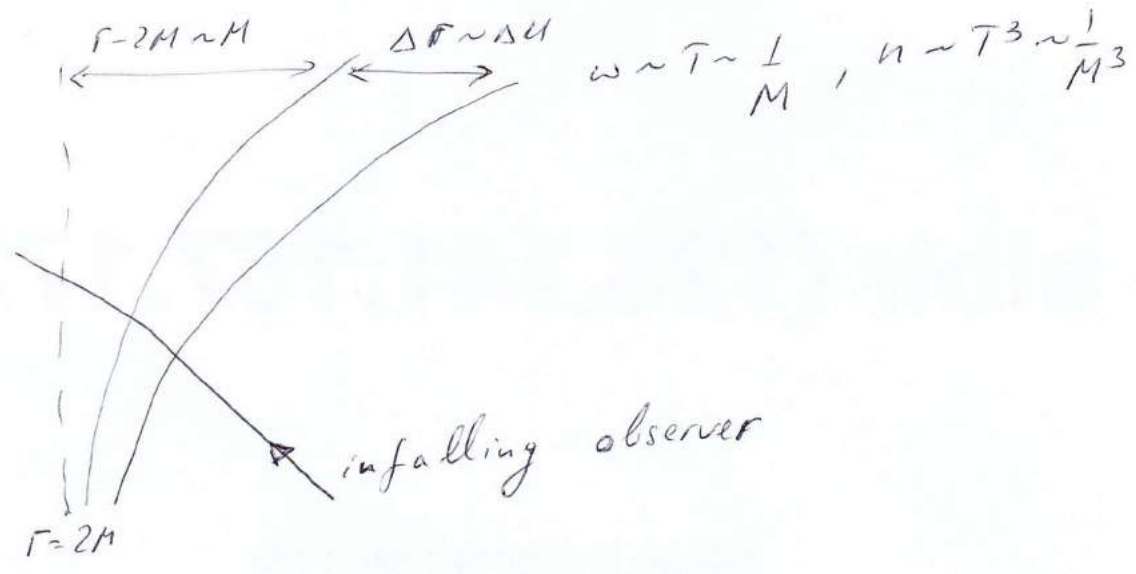 r-2M ~ M
Δr ~ ΔM
ω ~ T ~ 1/M , n ~ T³ ~ 1/M³
infalling observer
r=2M